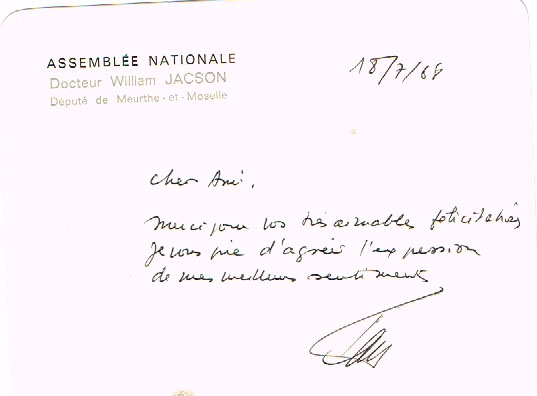 ASSEMBLÉE NATIONALE
Docteur William JACSON
Député de Meurthe-et-Moselle
18/7/68
Cher Ami,
Merci pour vos très aimables félicitations
Je vous prie d'agréer l'expression
de mes meilleurs sentiments